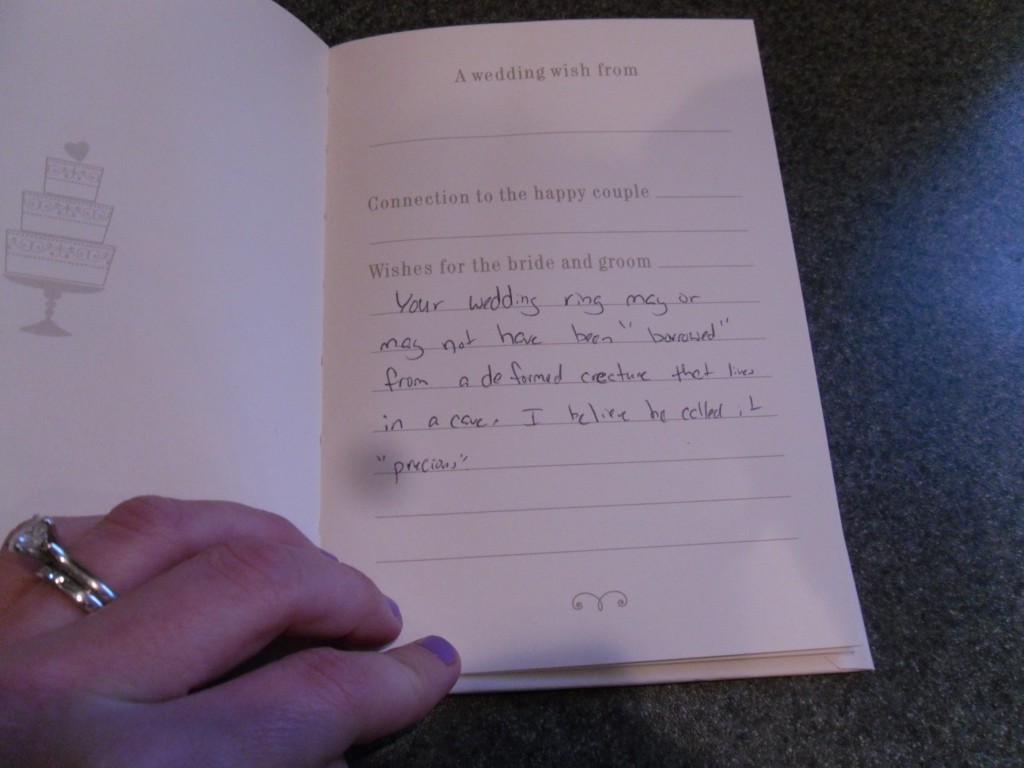 A wedding wish from
Connection to the happy couple
Wishes for the bride and groom
Your wedding ring may or
may not have been "borrowed"
from a deformed creature that lives
in a cave. I belive he called it
"precious"